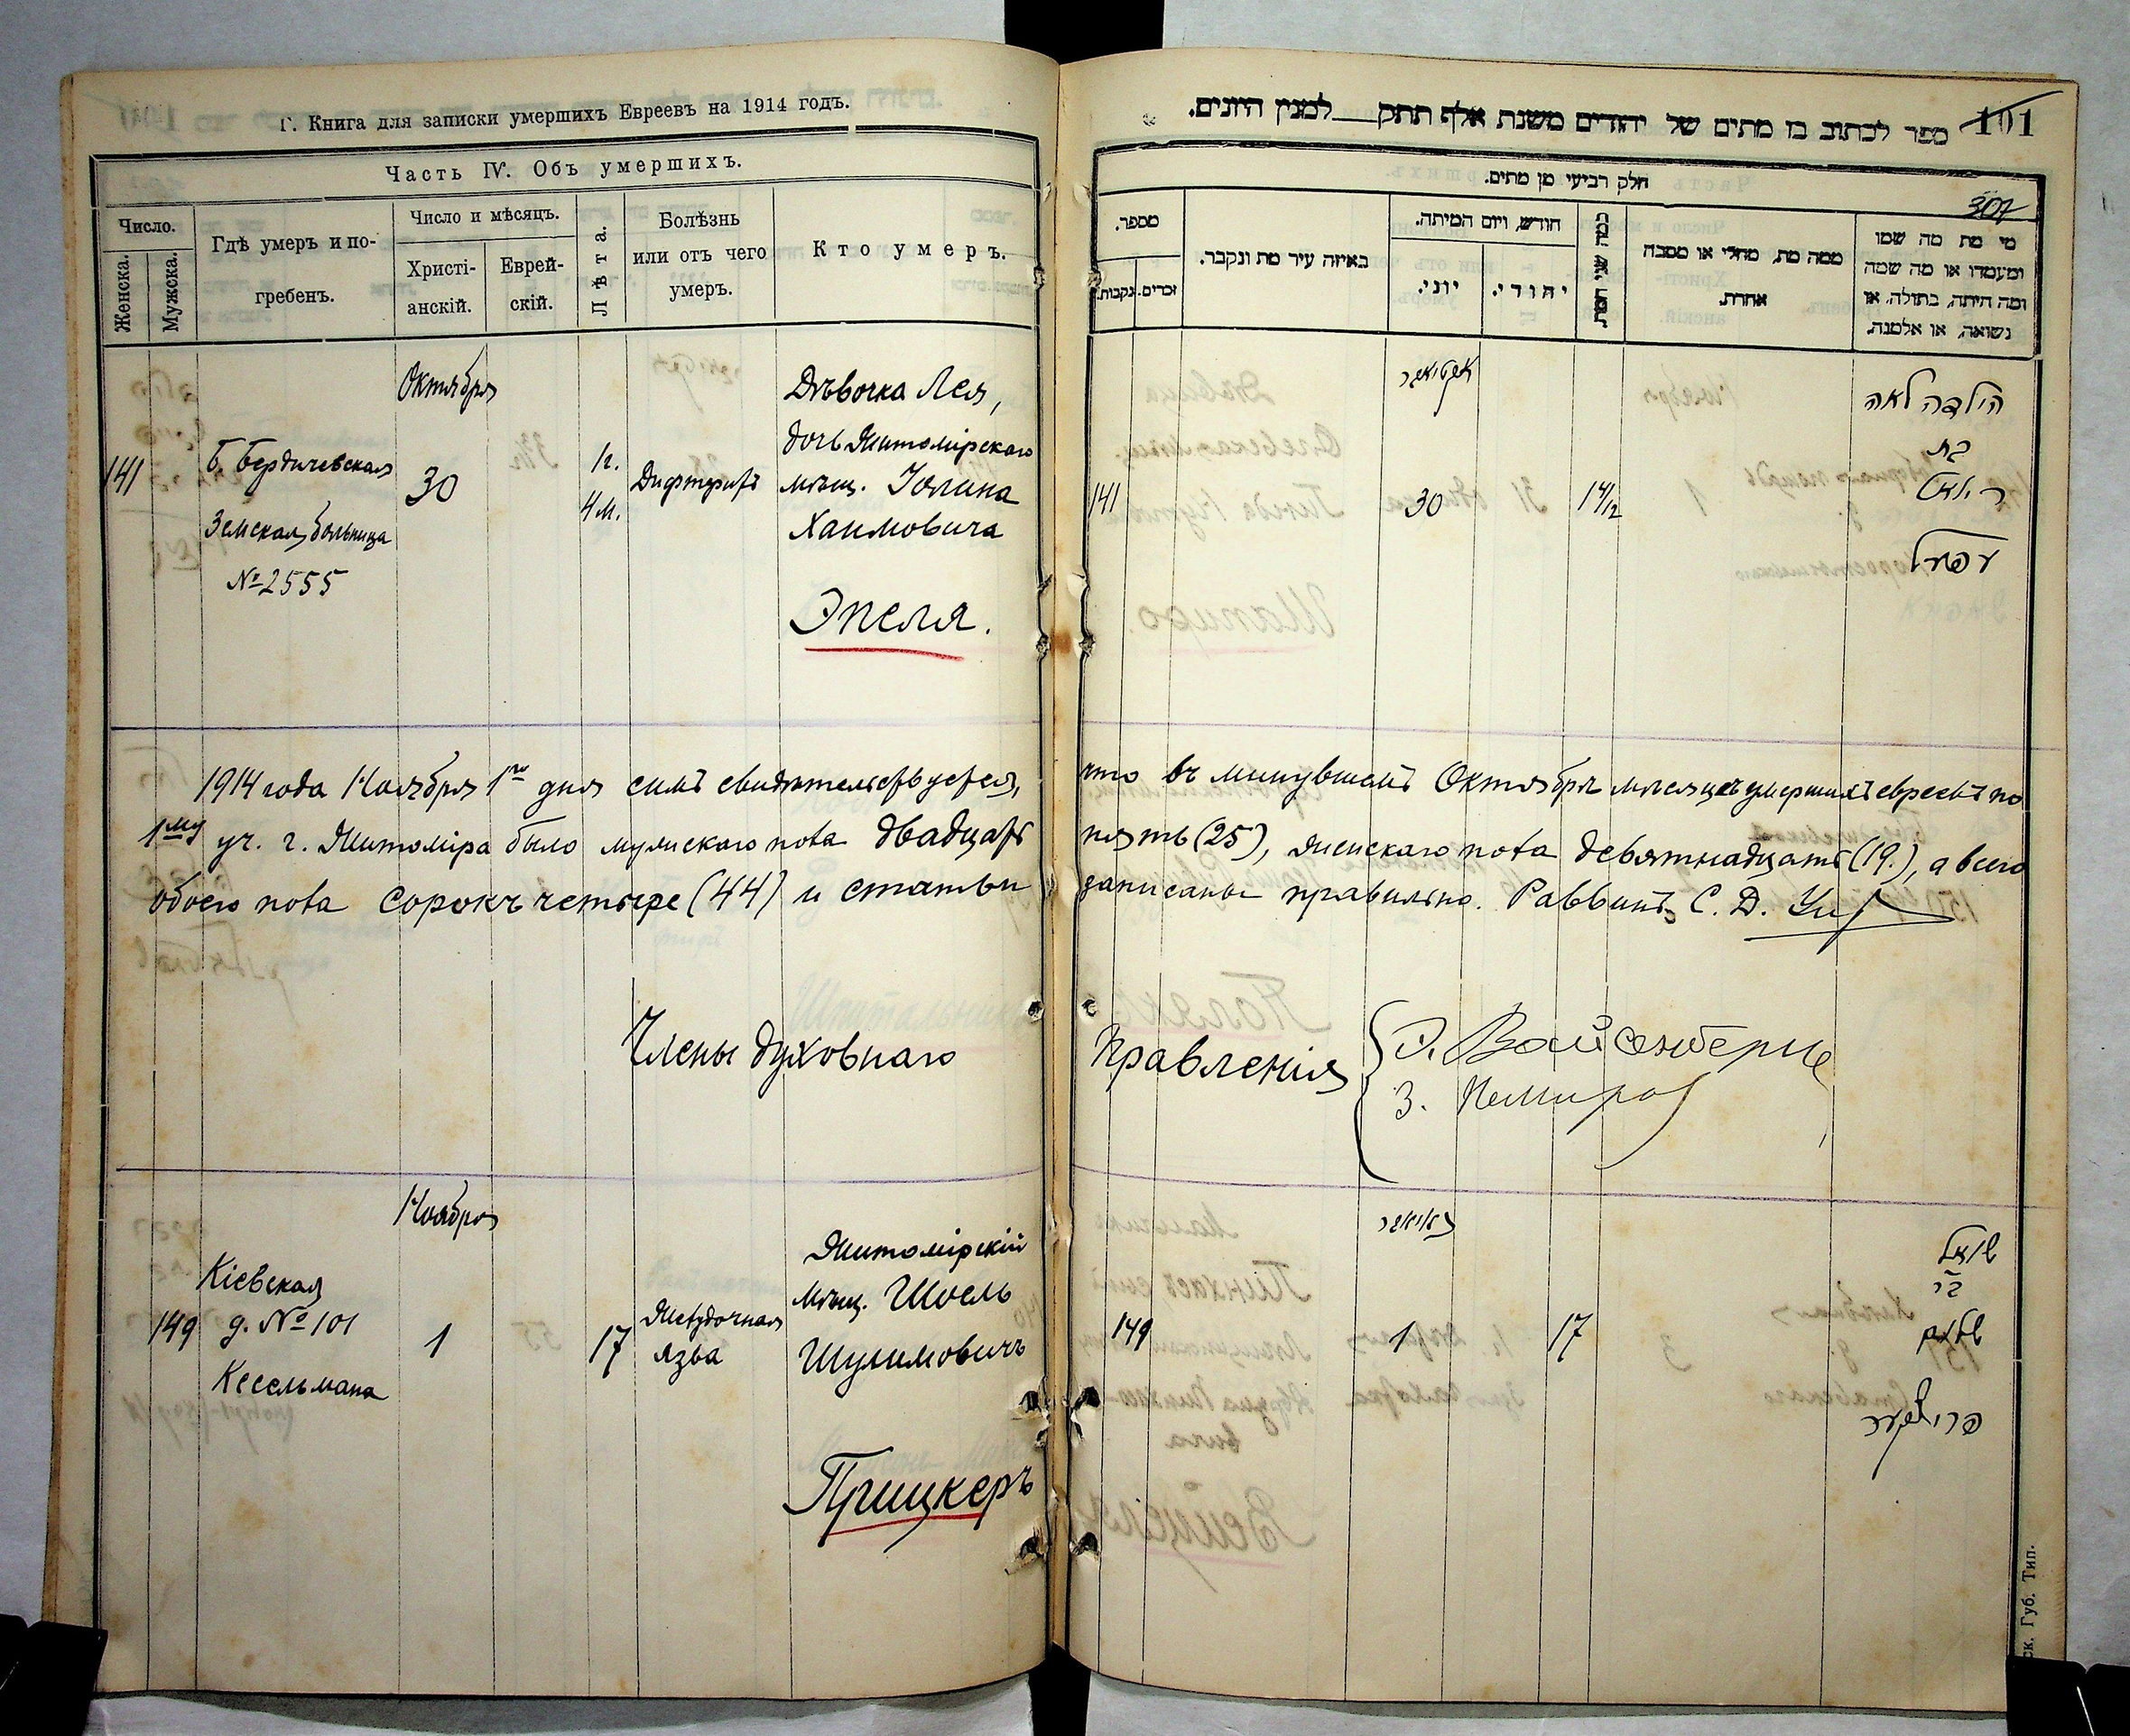 Г. Книга для записки умершихъ Евреевъ на 1914 годъ.
Часть IV. Объ умершихъ.
Число.
Женска.
Мужска.
Гдѣ умеръ и по-
гребенъ.
Число и мѣсяцъ.
Христі-
анскій.
Еврей-
скій.
Лѣта.
Болѣзнь
или отъ чего
умеръ.
Кто умеръ.
Октября
141
Б. Бердичевская
Земская больница
№ 2555
30
1г.
4м.
Дифтеритъ
Дѣвочка Лея,
дочь Житомірскаго
мѣщ.
Хаимовича
Эпеля.
1914 года Ноября 1го дня симъ свидѣтельствуется,
1му уч. г. Житоміра было мужскаго пола двадцать
обоего пола сорокъ четыре (44) и статьи
Члены духовнаго
Ноября
149
Кіевская
д. № 101
Кесельмана
1
17
Желудочная
язва
Житомірскій
мѣщ. Шоель
Шулимовичъ
Прицкеръ
ספר לכתוב בו מתים של יהודים משנת אלף תתק למנין היונים.
101
307
חלק רביעי מן מתים.
מספר.
נקבות.
זכרים.
באיזה עיר מת ונקבר.
חודש, ויום המיתה.
יוני.
יהודי.
כמה שני המת.
ממה מת, מחלי או מסבה
אחרת.
מי מת מה שמו
ומעמדו או מה שמה
ומה היתה, בתולה, או
נשואה, או אלמנה.
אקטיאבר
141
30
1 4/12
הילדה לאה
בת
עפעל
что въ минувшемъ Октябрѣ мѣсяцѣ умершихъ евреевъ по
пять (25), женскаго пола девятнадцать (19.), а всего
записаны правильно. Раввинъ С. Д.
Правленія
Вайсенберг
З. Немиров
נאיאבר
149
1
17
שואל
בר
שלום
פריצקער
ск. Губ. Тип.